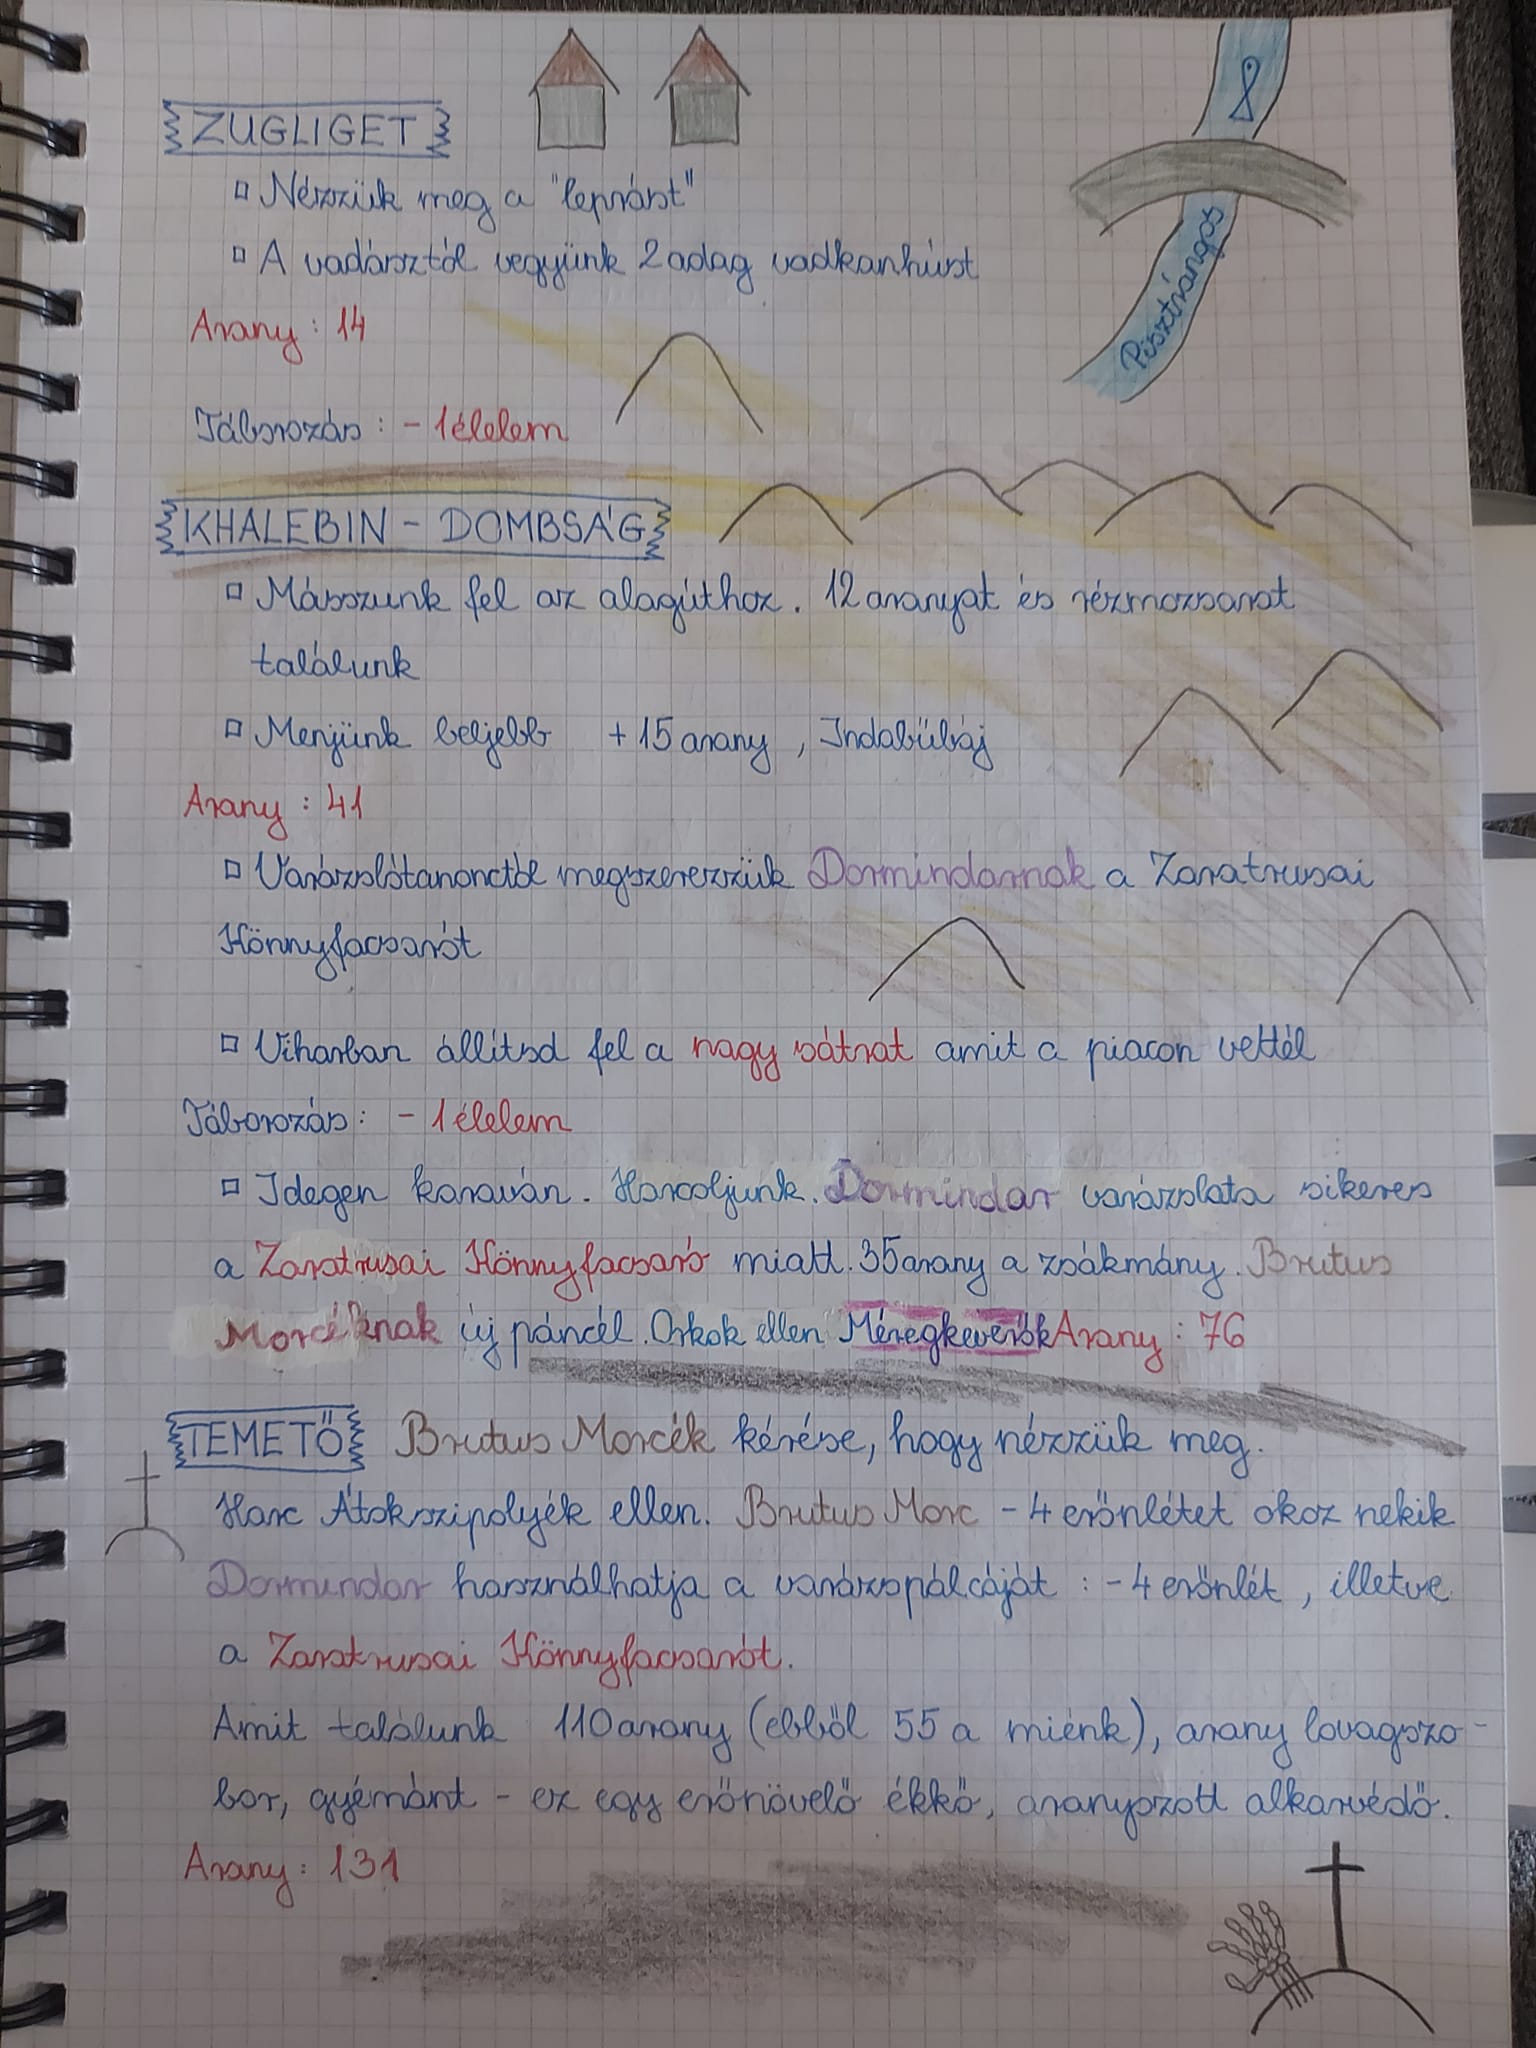 ZUGLIGET
Nézzük meg a "leprást"
A vadásztól vegyünk 2 adag vadkanhúst
Pisztrángos
Arany: 14
Táborozás: - 1 élelem
KHALEBIN - DOMBSÁG
Másszunk fel az alagúthoz. 12 aranyat és rézmozsarat
találunk
Menjünk beljebb + 15 arany, Indabűbáj
Arany: 41
Varázslótanonctól megszerezzük Dormindarnak a Zaratrusai
Könnyfacsarót
Viharban állítsd fel a nagy sátrat amit a piacon vettél
Táborozás: - 1 élelem
Idegen karaván. Harcoljunk. Dormindar varázslata sikeres
a Zaratrusai Könnyfacsaró miatt. 35 arany a zsákmány. Brutus
Morcéknak új páncél. Orkok ellen Méregkeverők Arany: 76
TEMETŐ Brutus Morcék kérése, hogy nézzük meg.
Harc Átokszipolyék ellen. Brutus Morc - 4 erőnlétet okoz nekik
Dormindar használhatja a varázspálcáját: - 4 erőnlét, illetve
a Zaratrusai Könnyfacsarót.
Amit találunk 110 arany (ebből 55 a miénk), arany lovagszo-
bor, gyémánt - ez egy erőnövelő ékkő, aranyozott alkarvédő.
Arany: 131